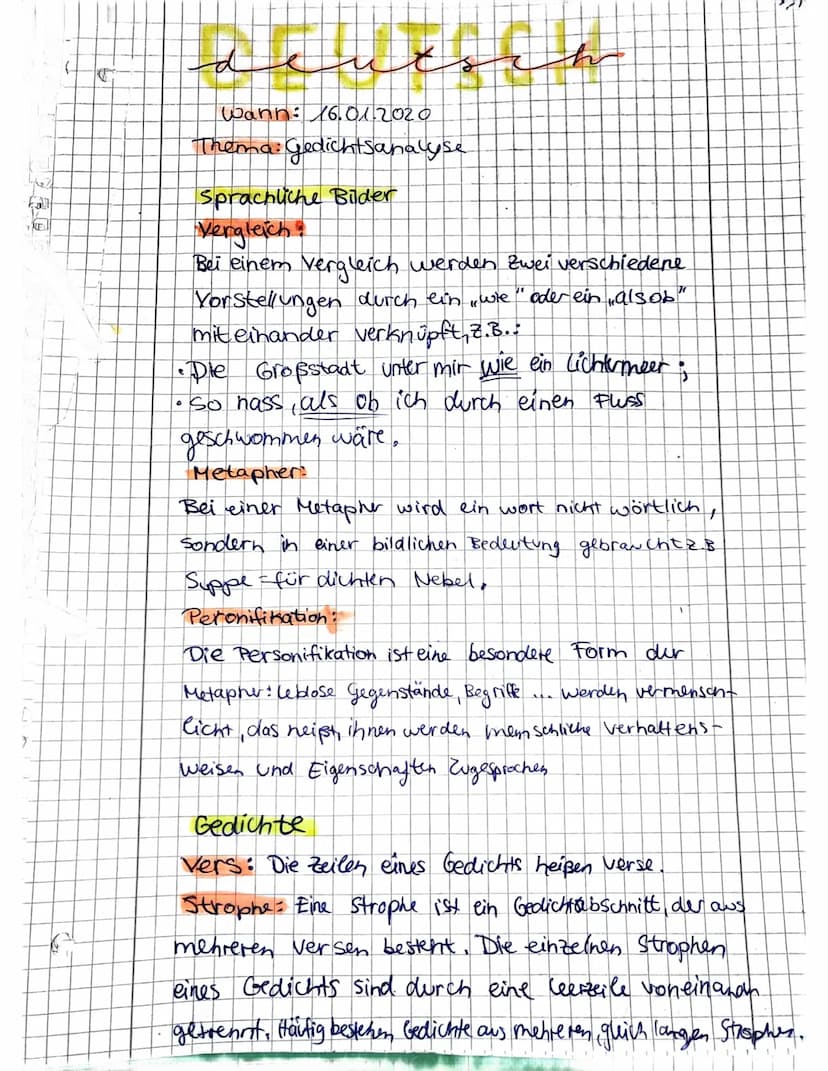 DEUTSCH
deutsch
Wann: 16.01.2020
Thema: Gedichtsanalyse
Sprachliche Bilder
Vergleich:
Bei einem Vergleich werden zwei verschiedene
Vorstellungen durch ein „wie" oder ein „als ob"
miteinander verknüpft, z.B.:
• Die Großstadt unter mir wie ein Lichtermeer;
• So nass, als ob ich durch einen Fluss
geschwommen wäre.
Metapher:
Bei einer Metapher wird ein wort nicht wörtlich,
sondern in einer bildlichen Bedeutung gebraucht z.B
Suppe = für dichten Nebel.
Peronifikation:
Die Personifikation ist eine besondere Form der
Metapher: Leblose Gegenstände, Begriffe ... werden vermensch-
licht, das heißt, ihnen werden menschliche Verhaltens-
weisen und Eigenschaften zugesprochen
Gedichte
Vers: Die Zeilen eines Gedichts heißen Verse.
Strophe: Eine Strophe ist ein Gedichtabschnitt, der aus
mehreren Versen besteht. Die einzelnen Strophen
eines Gedichts sind durch eine Leerzeile voneinandn
getrennt. Häufig bestehen Gedichte aus mehreren, gleich langen Strophen.